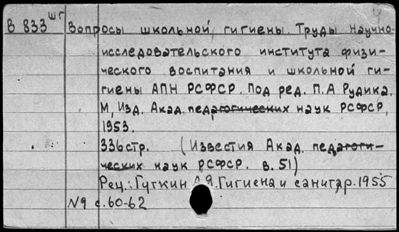 В 833 шг Вопросы школьной гигиены. Труды научно-
исследовательского института физи-
ческого воспитания и школьной ги-
гиены АПН РСФСР. Под ред. П.А Рудика.
М, Изд. Акад. педагогических наук РСФСР,
1953.
336стр. (Известия Акад. педагоги-
ческих наук РСФСР. в. 51)
Рец.: Гуткин А.Я. Гигиена и санитар. 1955
№9 с. 60-62